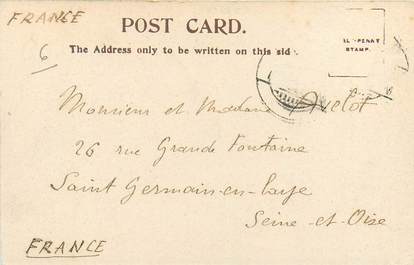 FRANCE
POST CARD.
The Address only to be written on this side.
6
Monsieur et Madame Avelot
26 rue Grande Fontaine
Saint Germain-en-Laye
Seine-et-Oise
FRANCE